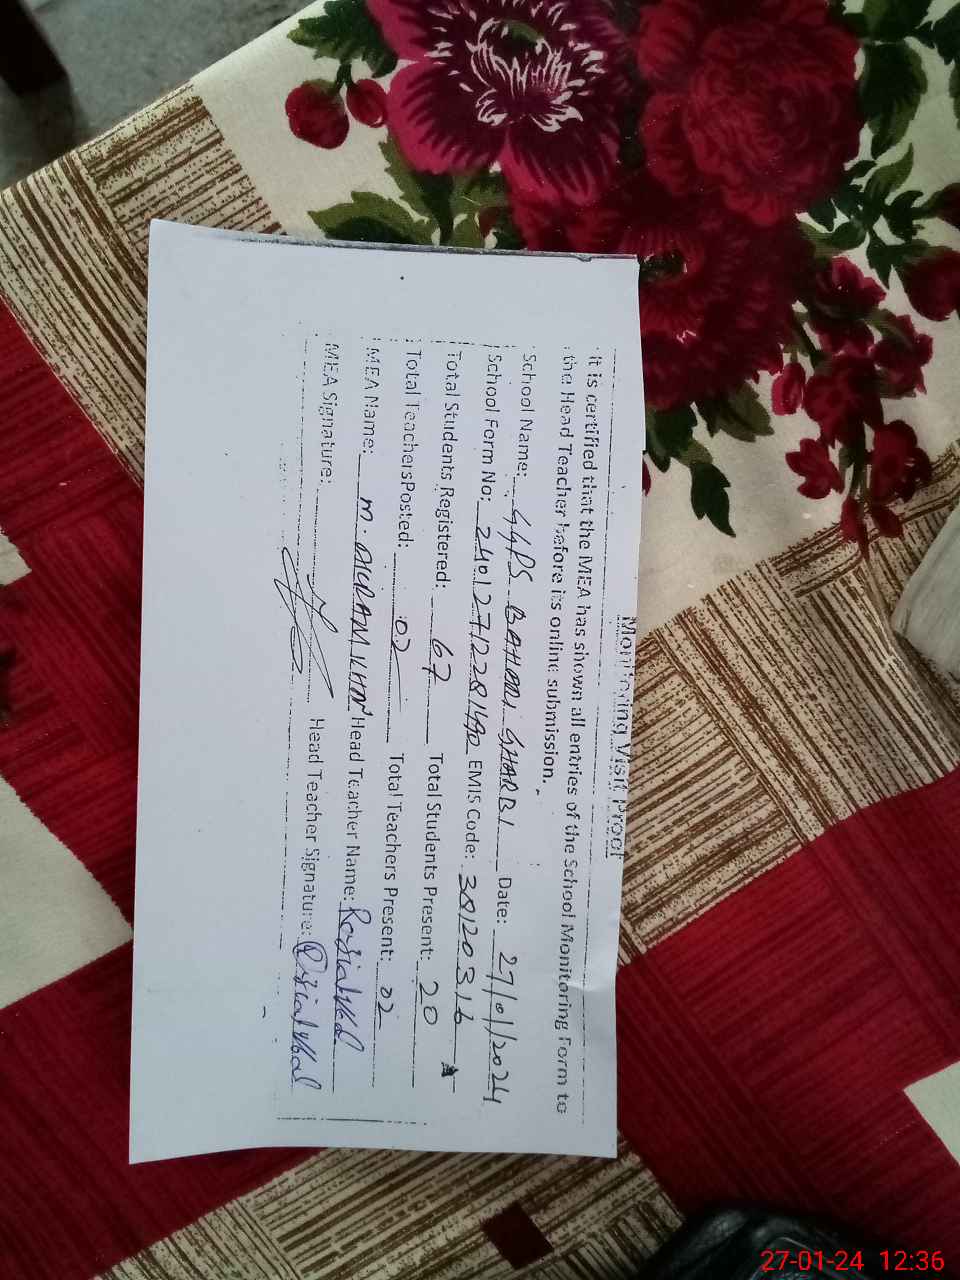 Monitoring Visit Proof
It is certified that the MEA has shown all entries of the School Monitoring Form to
the Head Teacher before its online submission.
School Name: GGPS BAHARI GHARBI Date: 27/01/2024
School Form No: EMIS Code: 38120316
Total Students Registered: 67 Total Students Present: 20
Total Teachers Posted: 02 Total Teachers Present: 02
MEA Name: M. AKRAM KHAN Head Teacher Name:
MEA Signature: Head Teacher Signature:
27-01-24 12:36